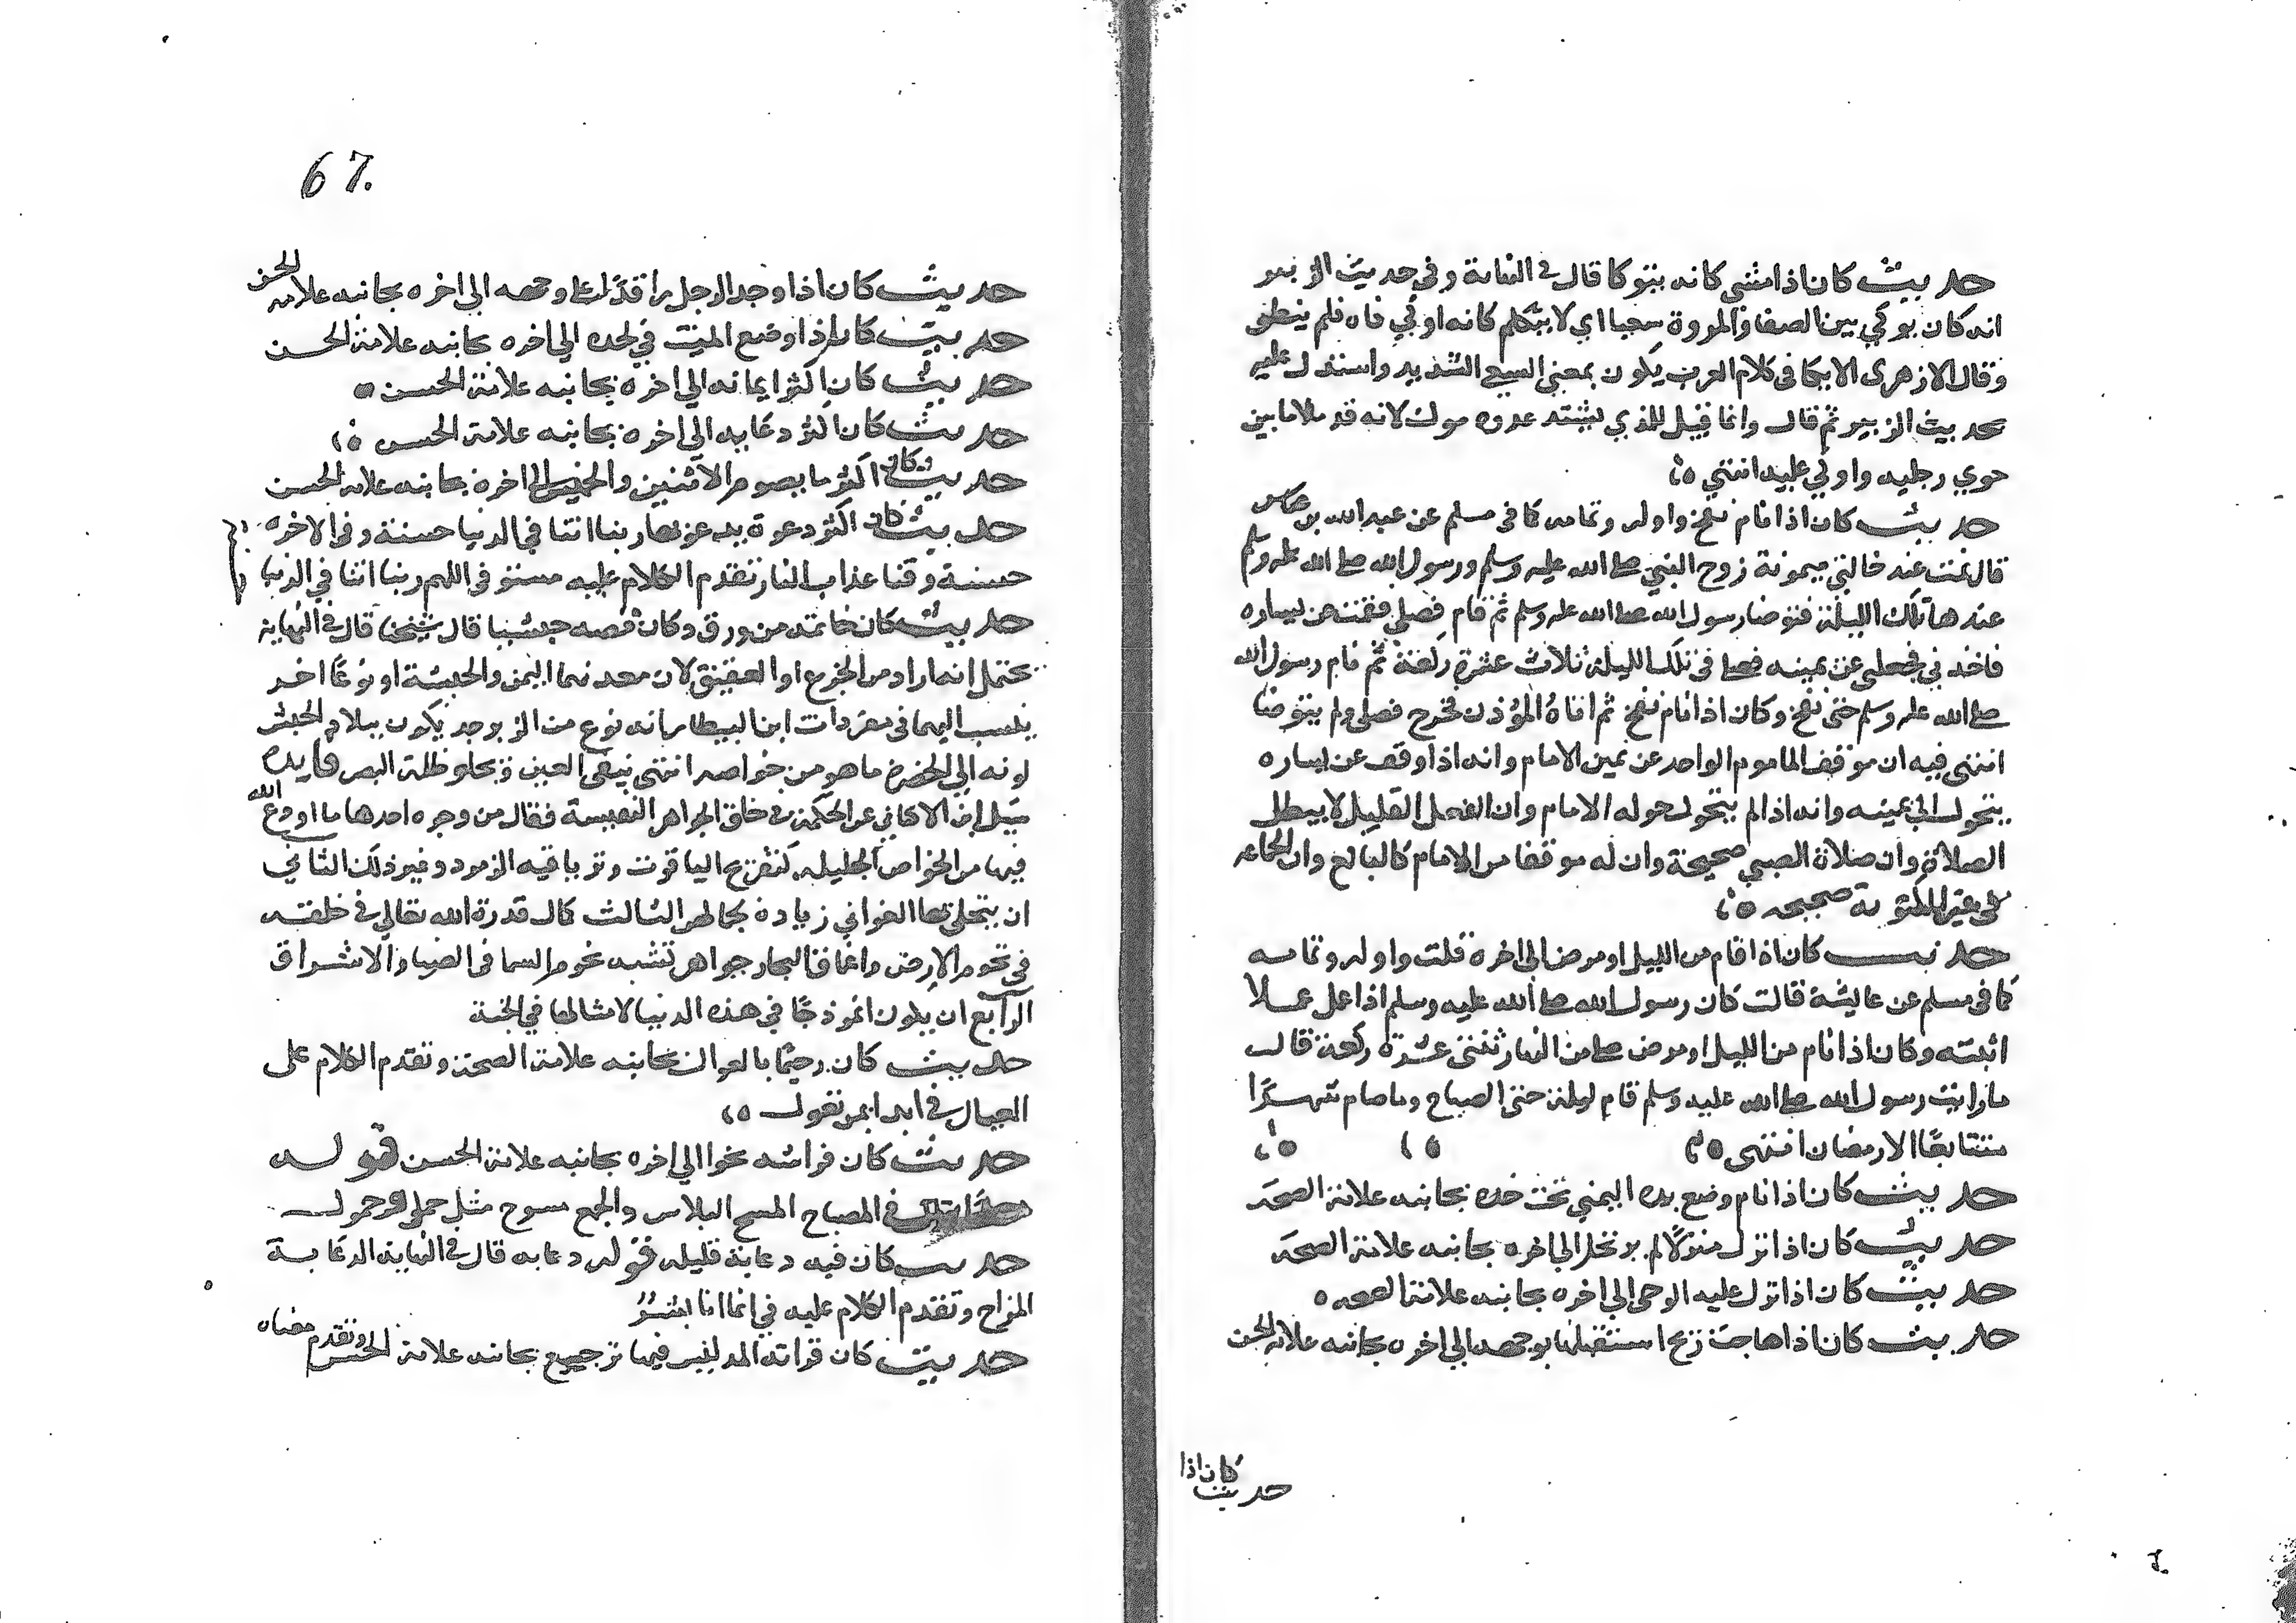 حديث كان اذا مشى كانه يتوكا قال في النهاية وفي حديث الزبير
انه كان يوكي بين الصفا والمروة سعيا اي لا يتكلم كانه اوكي فاه فلم ينطق
وقال الازهري الايكا في كلام العرب يكون بمعنى السعي الشديد واستدل عليه
بحديث الزبير ثم قال وانما قيل للذي يشتد عدوه موك لانه قد ملا ما بين
حوي رجليه واوكي عليه انتهى
حديث كان اذا نام نفخ واوله وتمامه كما في مسلم عن عبد الله بن عباس
قال نمت عند خالتي ميمونة زوج النبي صلى الله عليه وسلم ورسول الله صلى الله عليه وسلم
عندها تلك الليلة فتوضا رسول الله صلى الله عليه وسلم ثم قام فصلى فقمت عن يساره
فاخذني فجعلني عن يمينه فصلى في تلك الليلة ثلاث عشرة ركعة ثم نام رسول الله
صلى الله عليه وسلم حتى نفخ وكان اذا نام نفخ ثم اتاه المؤذن فخرج فصلى ولم يتوضا
انتهى فيه ان موقف الماموم الواحد عن يمين الامام وانه اذا وقف عن يساره
يتحول الى يمينه وانه اذا لم يتحول حوله الامام وان الفعل القليل لا يبطل
الصلاة وان صلاة الصبي صحيحة وان له موقفا من الامام كالبالغ وان الجماعه
في غير المكتوبة صحيحه
حديث كان اذا قام من الليل او مرض الى اخره قلت واوله وتمامه
كما في مسلم عن عايشة قالت كان رسول الله صلى الله عليه وسلم اذا عمل عملا
اثبته وكان اذا نام من الليل او مرض صلى من النهار ثنتى عشرة ركعة قالت
ما رايت رسول الله صلى الله عليه وسلم قام ليلة حتى الصباح وما صام شهرًا
متتابعًا الا رمضان انتهى
حديث كان اذا نام وضع يده اليمنى تحت خده بجانبه علامة الصحة
حديث كان اذا نزل منزلًا لم يرتحل الى اخره بجانبه علامة الصحة
حديث كان اذا نزل عليه الوحي الى اخره بجانبه علامة الصحه
حديث كان اذا هاجت ريح استقبلها بوجهه الى اخره بجانبه علامة الحسن
حديث كان اذا
67.
حديث كان اذا وجد الرجل راقدًا على وجهه الى اخره بجانبه علامة الحسن
حديث كان اذا وضع الميت في لحده الى اخره بجانبه علامة الحسن
حديث كان اكثر ايمانه الى اخره بجانبه علامة الحسن
حديث كان اكثر دعايه الى اخره بجانبه علامة الحسن
حديث كان اكثر ما يصوم الاثنين والخميس الى اخره بجانبه علامة الحسن
حديث كان اكثر دعوة يدعو بها ربنا اتنا في الدنيا حسنة وفي الاخرة
حسنة وقنا عذاب النار تقدم الكلام عليه مستوفى في اللهم ربنا اتنا في الدنيا
حديث كان خاتمه من ورق وكان فصه حبشيا قال شيخنا قال في النهاية
يحتمل انه اراد من الجزع او العقيق لان معدنهما اليمن والحبشة او نوعًا اخر
ينسب اليها في مفردات ابن البيطار انه نوع من الزبرجد يكون ببلاد الحبش
لونه الى الخضرة ما هو من خواصه انتهى ينقى العين ويجلو ظلمة البصر فايدة
سيل ابن الاكفاني عن الحكمة في خلق الجواهر النفيسة فقال من وجوه احدها ما اودع الله
فيها من الخواص الجليله كتفريح الياقوت وترياقيه الزمرد وغير ذلك الثاني
ان يتحلى بها الغواني زيادة بجمالهن الثالث كمال قدرة الله تعالى في خلقه
في تخوم الارض واعماق البحار جواهر تشبه نجوم السما في الضيا والاشراق
الرابع ان يكون انموذجًا في هذه الدنيا لامثالها في الجنة
حديث كان رحيمًا بالعيال بجانبه علامة الصحة وتقدم الكلام على
العيال في ابدا بمن تعول
حديث كان فراشه نحوا الى اخره بجانبه علامة الحسن قوله
في المصباح المسح البلاس والجمع مسوح مثل حمل وحمول
حديث كان فيه دعابة قليله قوله دعابه قال في النهاية الدعابة
المزاح وتقدم الكلام عليه في انما انا بشر
حديث كان قراته المد ليس فيها ترجيع بجانبه علامة الحسن وتقدم معناه